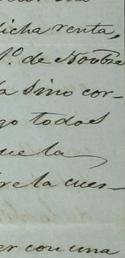 icha renta,
1º. de Novbre
a sino cor-
go todos
que la
bre la cues-
er con una